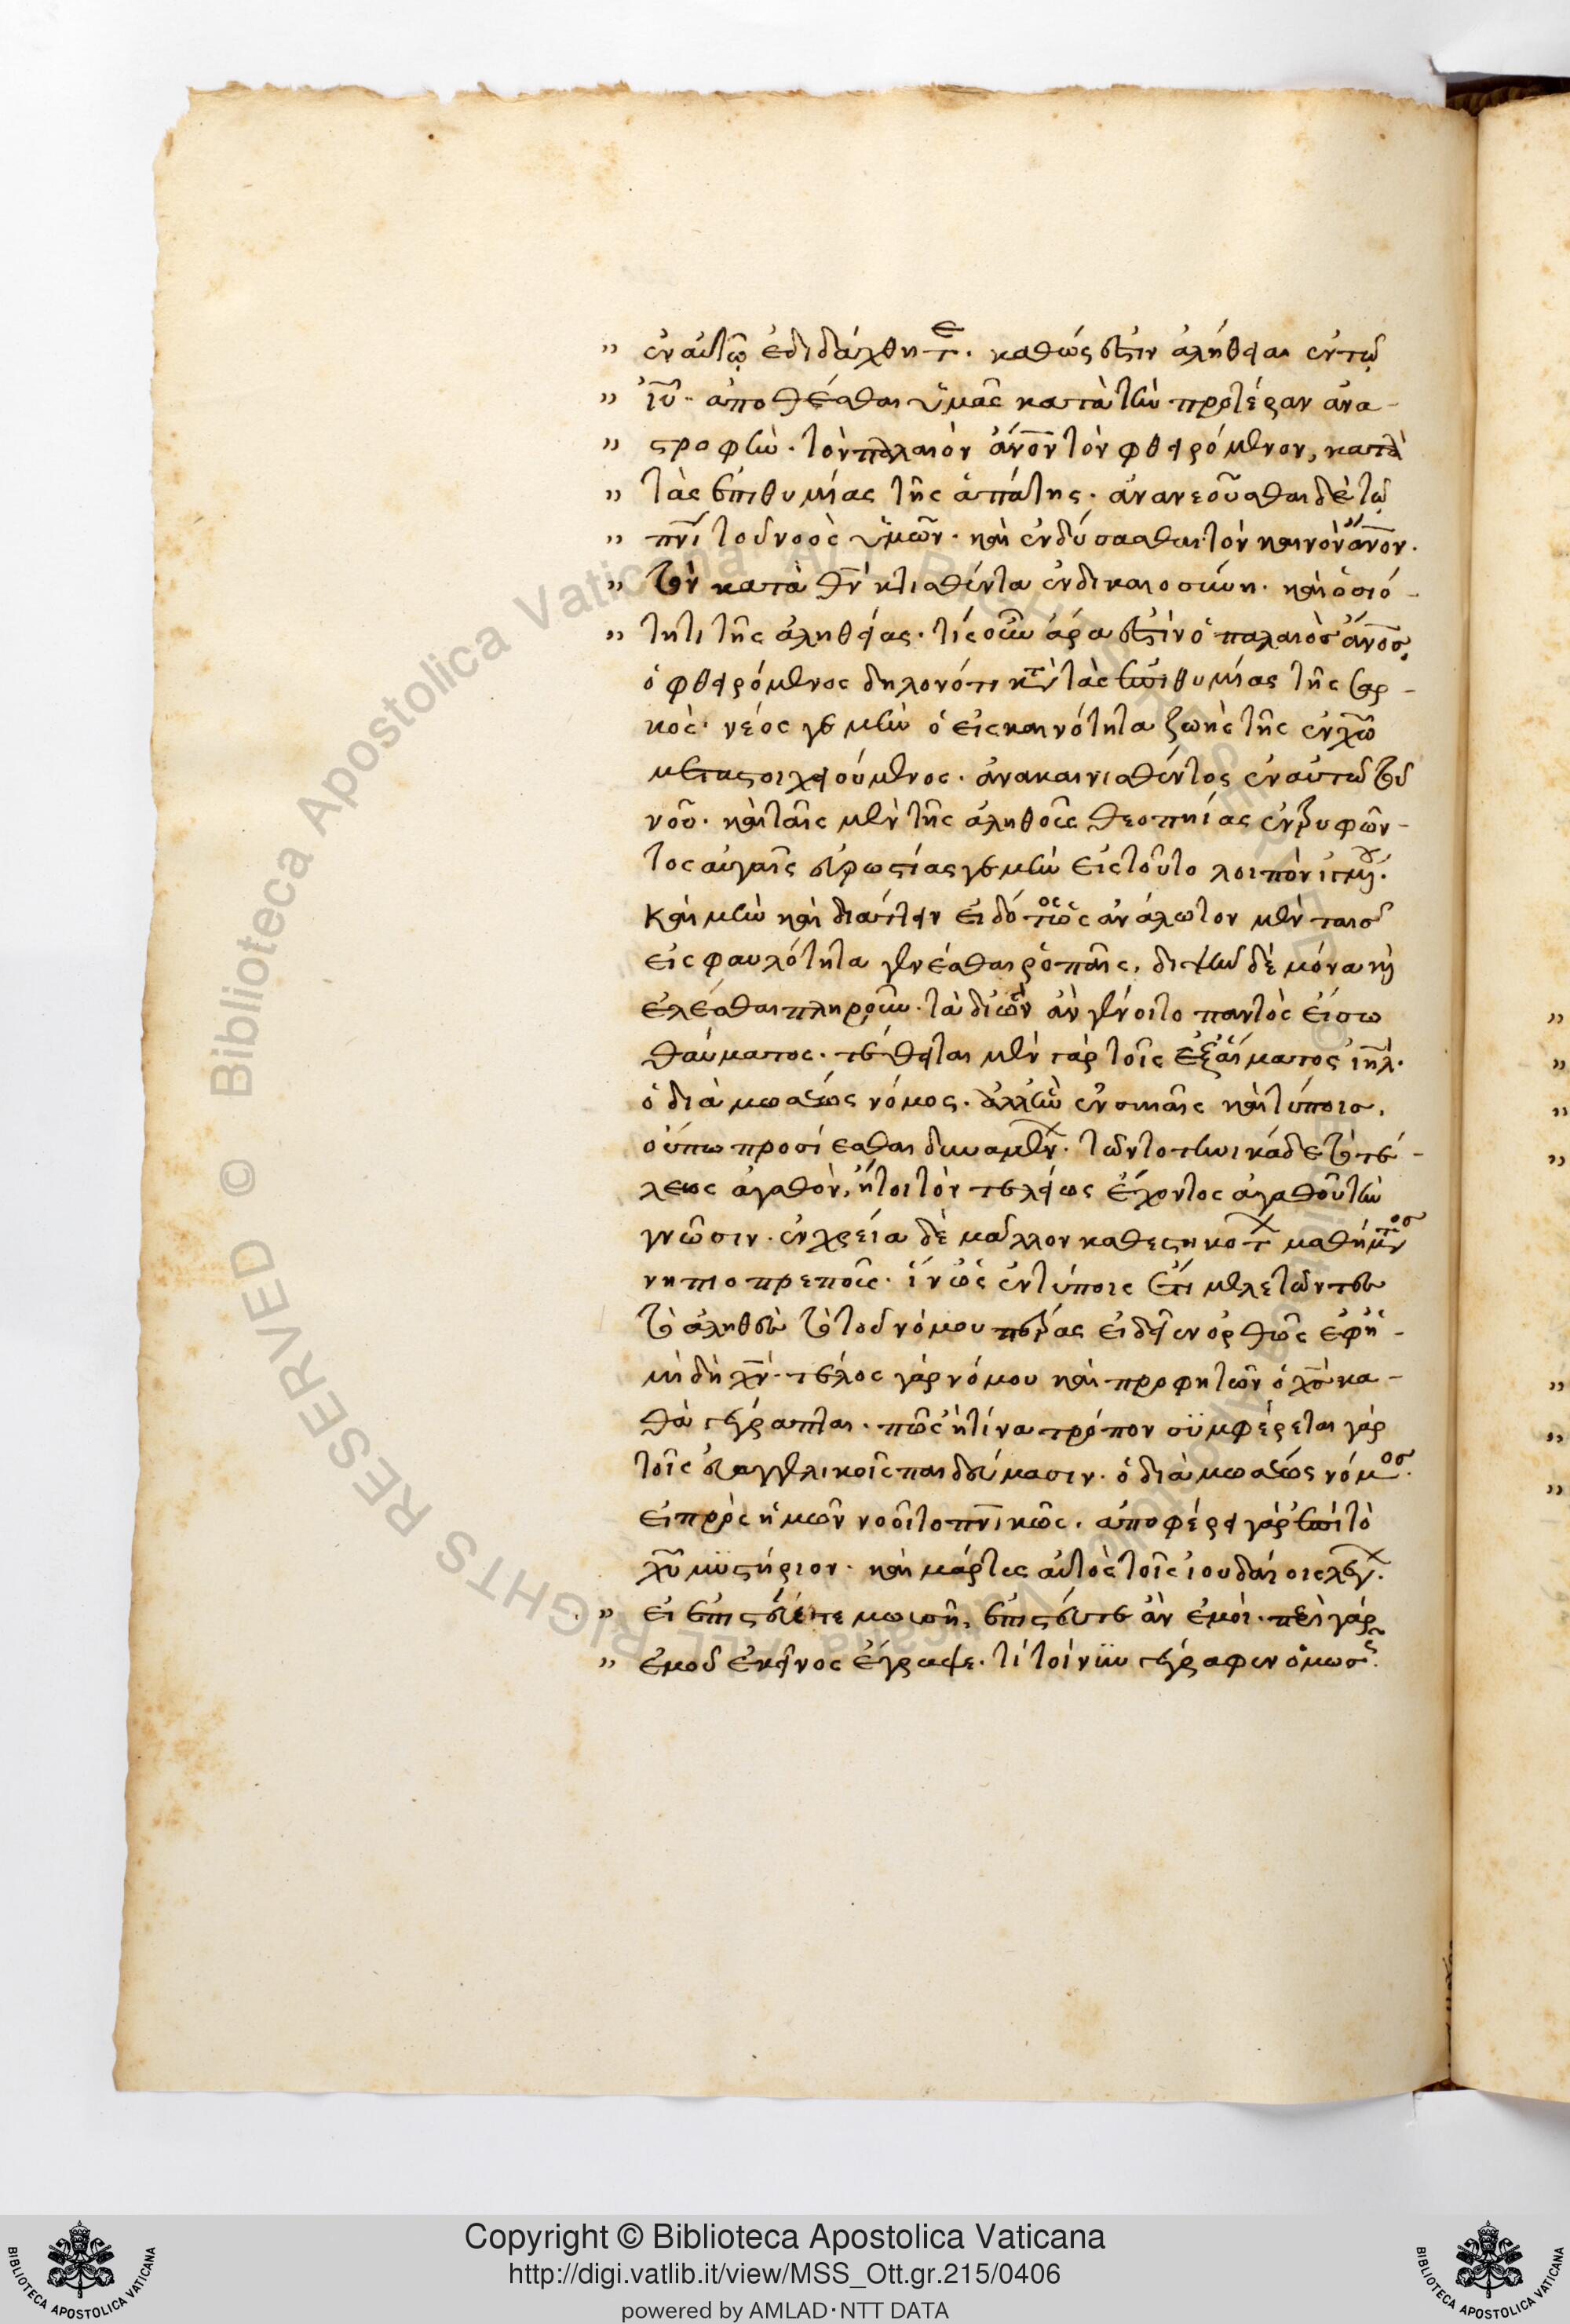 " ἐν αὐτῷ ἐδιδάχθητε. καθώς ἐστιν ἀλήθεια ἐν τῷ
" ἰῦ. ἀποθέσθαι ὑμᾶς κατὰ τὴν προτέραν ἀνα-
" στροφὴν. τὸν παλαιὸν ἄνον τὸν φθειρόμενον, κατὰ
" τὰς ἐπιθυμίας τῆς ἀπάτης. ἀνανεοῦσθαι δὲ τῷ
" πνι τοῦ νοὸς ὑμῶν. καὶ ἐνδύσασθαι τὸν καινὸν ἄνον.
" τὸν κατὰ θν κτισθέντα ἐν δικαιοσύνη. καὶ ὁσιό-
" τητι τῆς ἀληθείας. τίς οὖν ἄρα ἐστὶν ὁ παλαιὸς ἄνος,
ὁ φθειρόμενος δηλονότι κατὰ τὰς ἐπιθυμίας τῆς σαρ-
κός. νέος γε μὴν ὁ εἰς καινότητα ζωῆς τῆς ἐν χῶ
μεταστοιχειούμενος. ἀνακαινισθέντος ἐν αὐτῶ τοῦ
νοῦ. καὶ ταῖς μὲν τῆς ἀληθοῦς θεοπτίας ἐντρυφῶν-
τος αὐγαῖς εὐρωστίας γε μὴν εἰς τοῦτο λοιπὸν
καὶ μὴν καὶ διάττειν εἰδότος ὡς ἀνάλωτον μὲν ταῖς
εἰς φαυλότητα γενέσθαι ῥοπαῖς,
ἑλέσθαι πληροῦν. τὰ δι' ὧν ἂν γένοιτο παντὸς εἴσω
θαύματος. τέθειται μὲν γὰρ τοῖς ἐξ αἵματος ἰηλ.
ὁ διὰ μωσέως νόμος. ἀλλ' ἦν ἐν σκιαῖς καὶ τύποις,
οὔπω προσίεσθαι δυναμένων. τῶν τὸ τηνικάδε τὸ τε-
λέως ἀγαθὸν, ἤτοι τὸν τελείως ἔχοντος ἀγαθοῦ τὴν
γνῶσιν. ἐν χρεία δὲ μᾶλλον καθεστηκότων μαθήματος
νηπιοπρεποῦς. ἵν' ὡς ἐν τύποις ἔτι μελετῶντες
τὸ ἀληθὲς τὸ τοῦ νόμου πέρας εἰδεῖεν ὀρθῶς ἐφ' ᾗ-
μὴ δὴ χν. τέλος γὰρ νόμου καὶ προφητῶν ὁ χς κα-
θὰ γέγραπται. πῶς ἢ τίνα τρόπον συμφέρεται γὰρ
τοῖς εὐαγγελικοῖς παιδεύμασιν. ὁ διὰ μωσέως νόμος.
εἰ πρὸς ἡμῶν νοοῖτο πνικῶς. ἀποφέρει γὰρ ἐπὶ τὸ
χῦ μυστήριον. καὶ μάρτυς αὐτὸς τοῖς ἰουδαίοις λέγων.
" εἰ ἐπιστεύετε μωσῆ, ἐπιστεύετε ἂν ἐμοί. περὶ γὰρ
" ἐμοῦ ἐκεῖνος ἔγραψε. τί τοίνυν γέγραφεν ὁ μωσῆς.
Copyright © Biblioteca Apostolica Vaticana
http://digi.vatlib.it/view/MSS_Ott.gr.215/0406
powered by AMLAD·NTT DATA